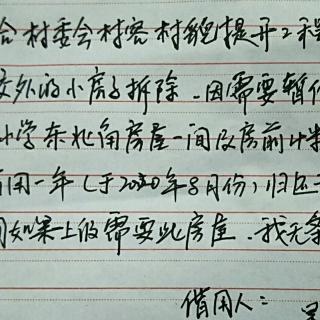 合村委会村容村貌提升工程
校外的小房子拆除.因需要暂借
小学东北角房屋一间及房前计料
借用一年(于2020年8月份)归还于
间如果上级需要此房屋.我无条
借用人: